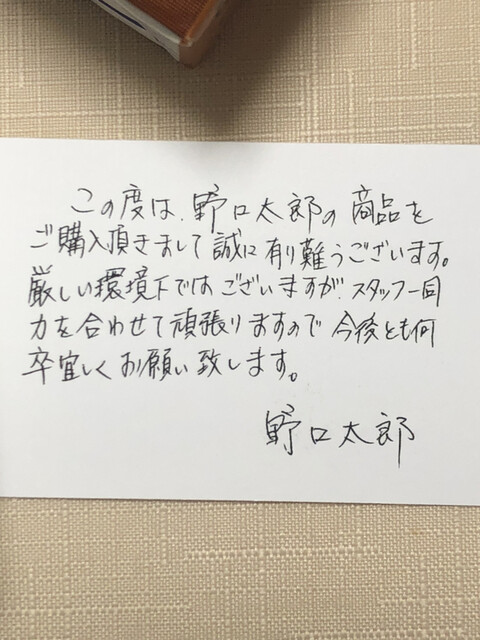 この度は、野口太郎の商品を
ご購入頂きまして誠に有り難うございます。
厳しい環境下ではございますが、スタッフ一同
力を合わせて頑張りますので今後とも何
卒宜しくお願い致します。
野口太郎